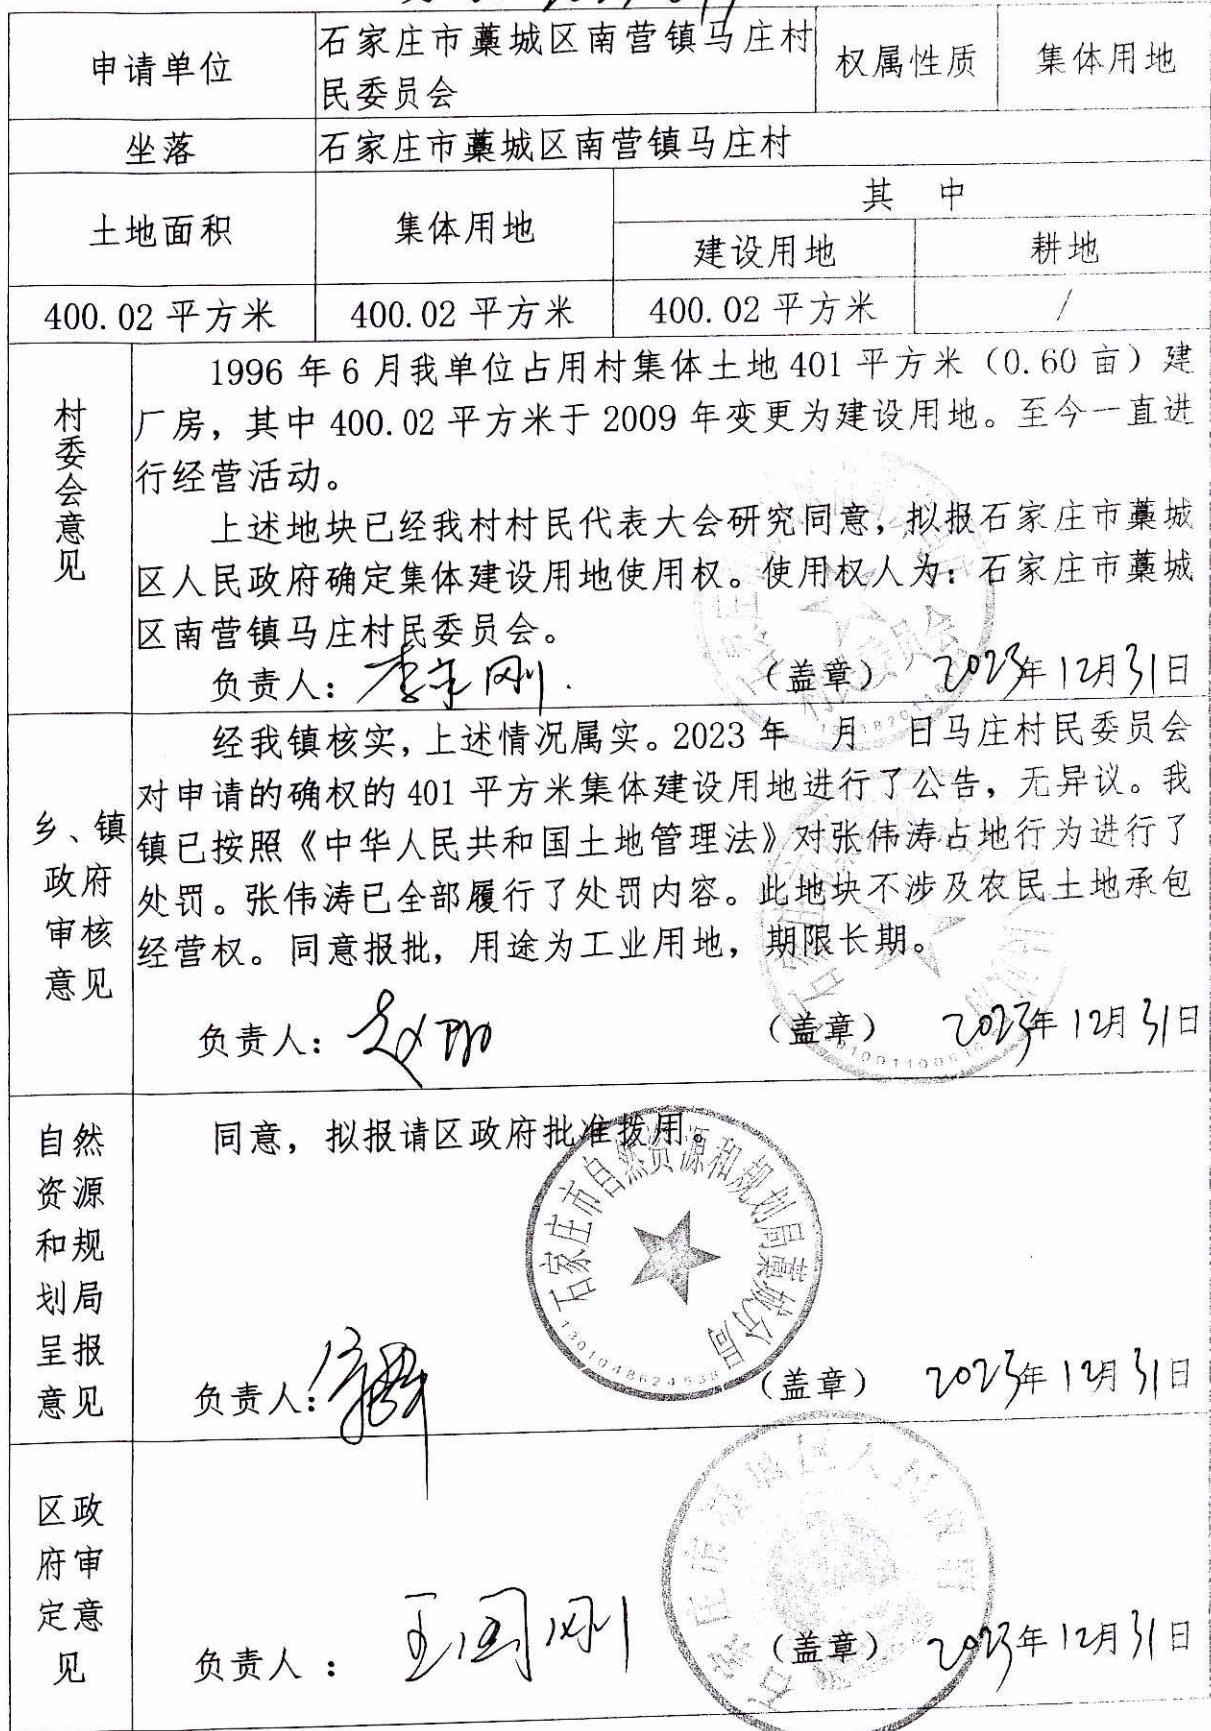 申请单位
石家庄市藁城区南营镇马庄村
民委员会
权属性质
集体用地
坐落
石家庄市藁城区南营镇马庄村
土地面积
集体用地
其 中
建设用地
耕地
400.02 平方米
400.02 平方米
400.02 平方米
/
村委会意见
1996 年 6 月我单位占用村集体土地 401 平方米（0.60 亩）建
厂房，其中 400.02 平方米于 2009 年变更为建设用地。至今一直进
行经营活动。
上述地块已经我村村民代表大会研究同意，拟报石家庄市藁城
区人民政府确定集体建设用地使用权。使用权人为：石家庄市藁城
区南营镇马庄村民委员会。
负责人：
（盖章） 2023年12月31日
乡、镇
政府
审核
意见
经我镇核实，上述情况属实。2023 年 月 日马庄村民委员会
对申请的确权的 401 平方米集体建设用地进行了公告，无异议。我
镇已按照《中华人民共和国土地管理法》对张伟涛占地行为进行了
处罚。张伟涛已全部履行了处罚内容。此地块不涉及农民土地承包
经营权。同意报批，用途为工业用地，期限长期。
负责人：
（盖章） 2023年12月31日
自然
资源
和规
划局
呈报
意见
同意，拟报请区政府批准拨用。
石家庄市自然资源和规划局藁城分局
负责人：
（盖章） 2023年12月31日
区政
府审
定意
见
石家庄市藁城区人民政府
负责人 ： 王国刚
（盖章） 2023年12月31日